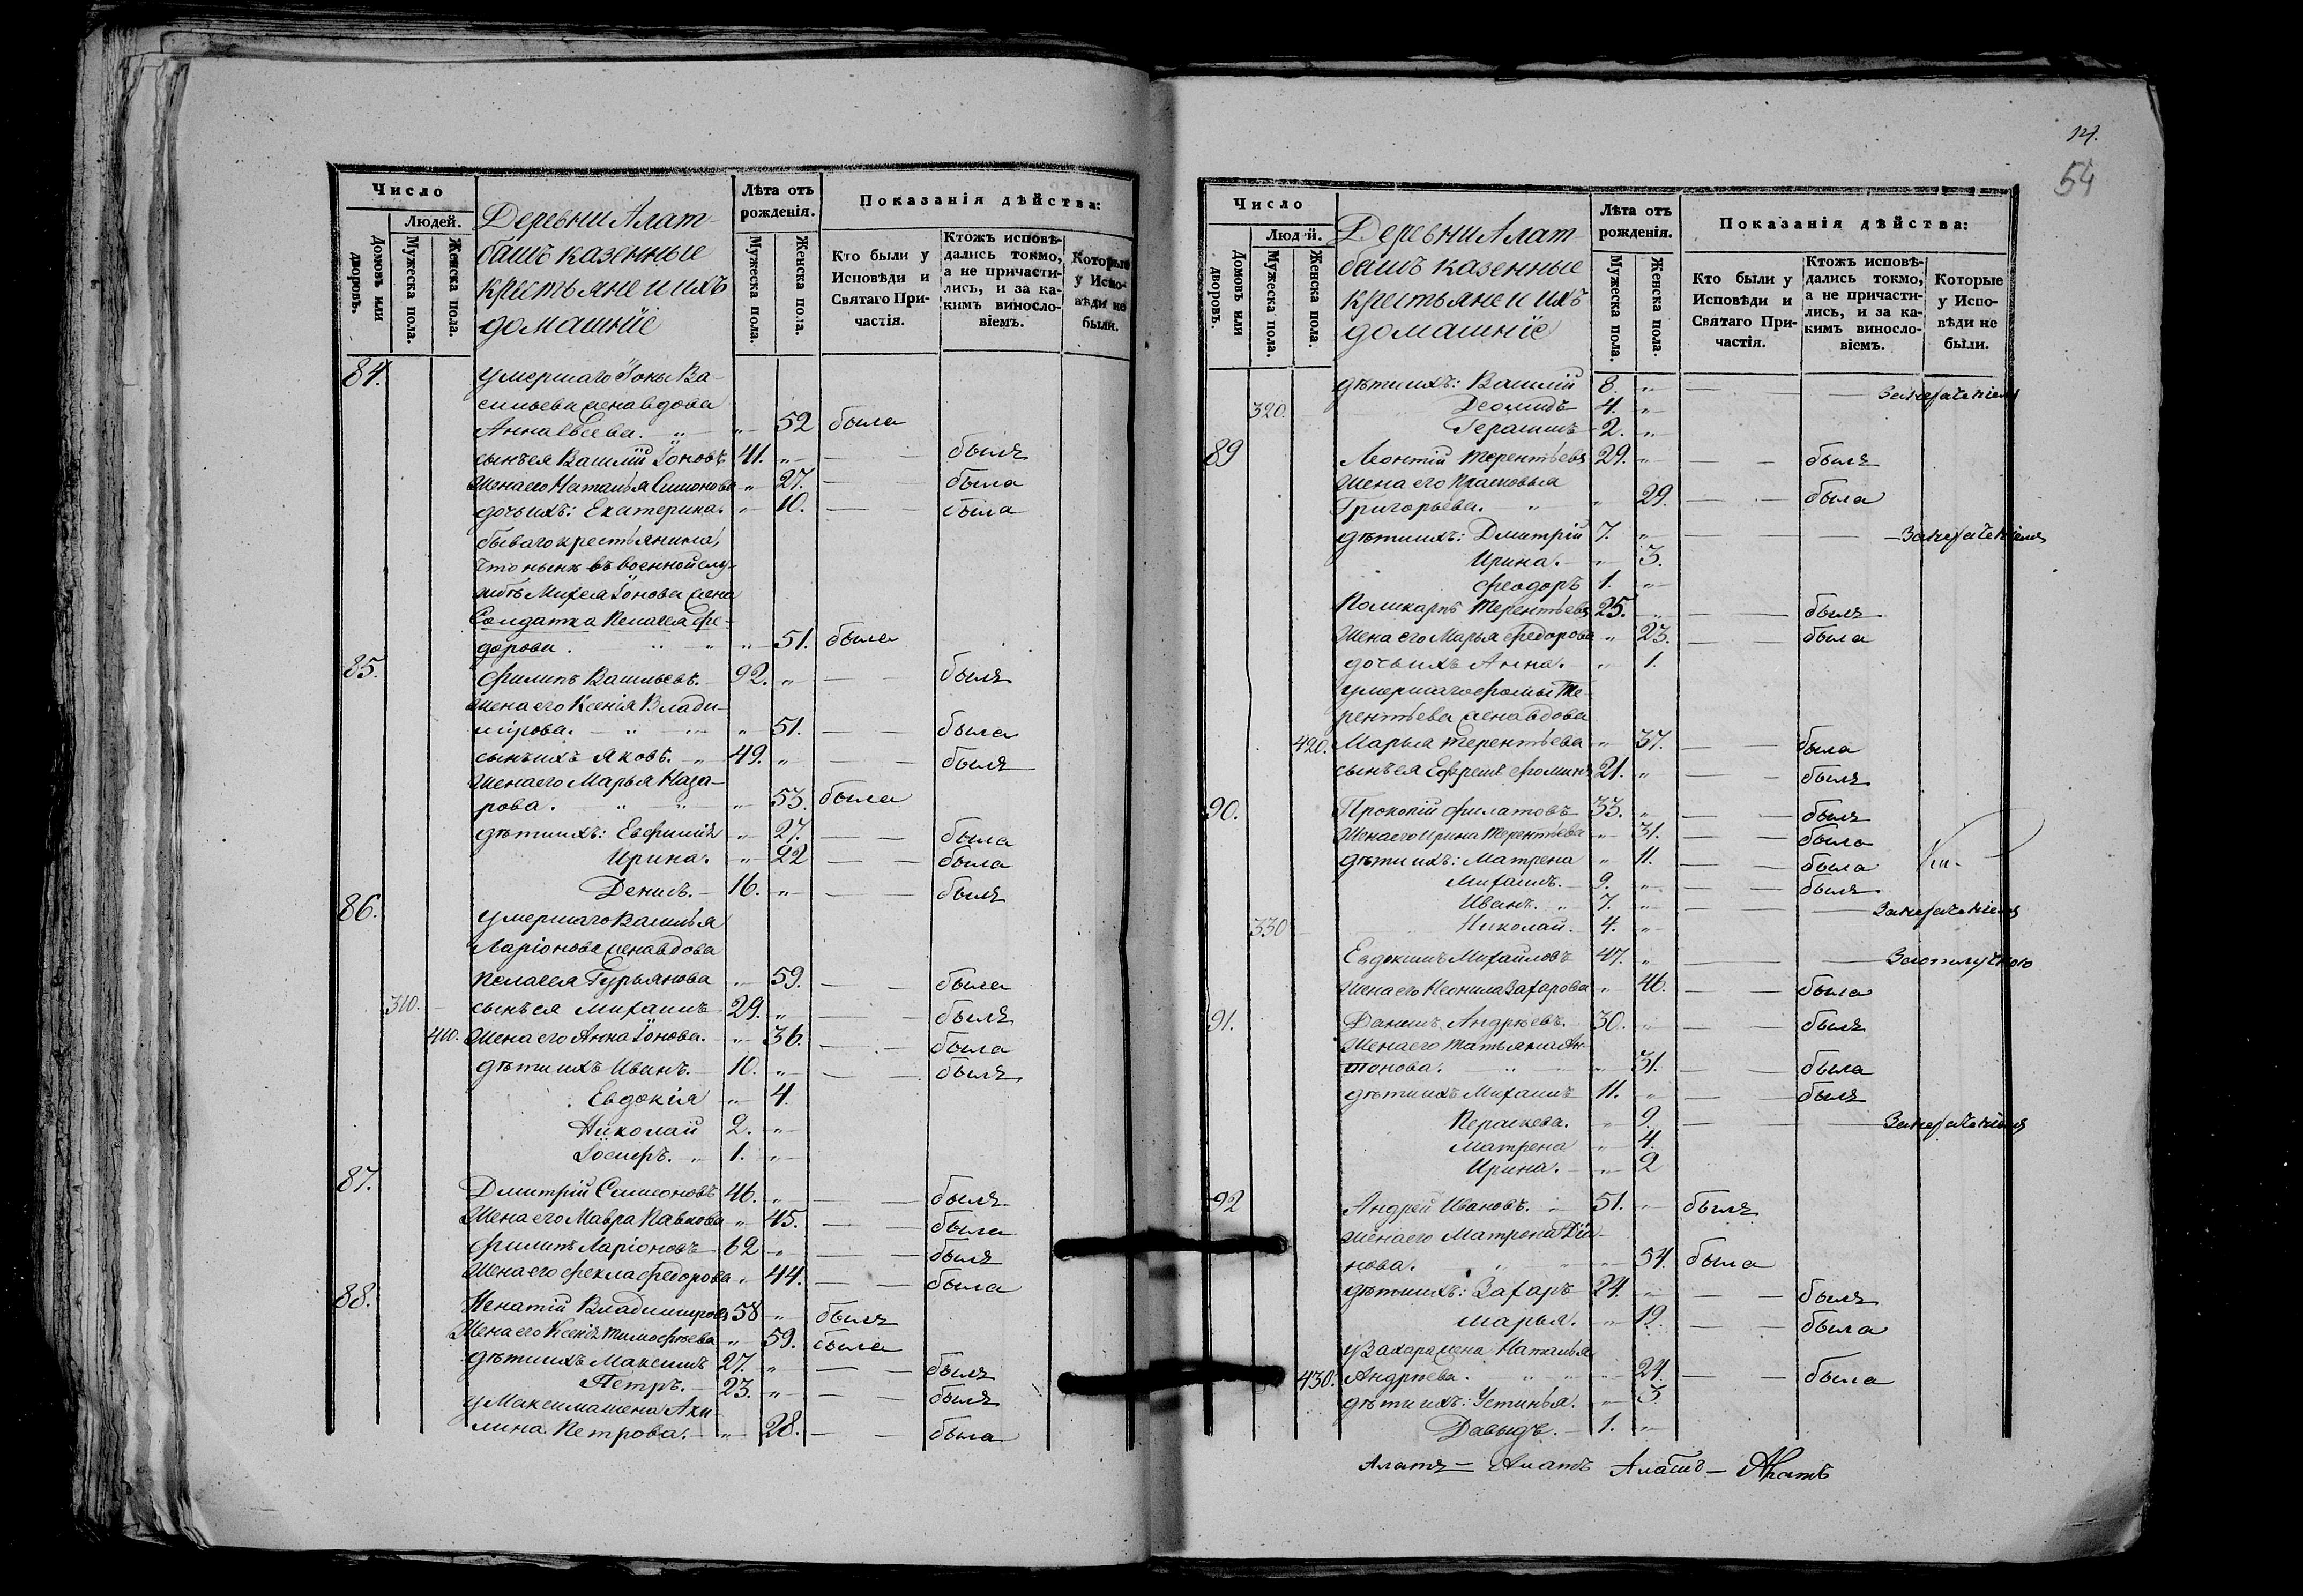 Число
Людей.
Домовъ или дворовъ.
Мужеска пола.
Женска пола.
Деревни Алат-
башъ казенные
крестьяне и ихъ
домашніе
Лѣта отъ рожденія.
Мужеска пола.
Женска пола.
Показанія дѣйства:
Кто были у Исповѣди и Святаго Причастія.
Ктожъ исповѣдались токмо, а не причастились, и за какимъ винословіемъ.
Которые у Исповѣди не были.
84. умершаго Іоны Ва-
сильева жена вдова
Анна Евсева. 52 была
сынъ ея Василій Іоновъ 41. былъ
жена его Наталья Симонова 27. была
дочь ихъ: Екатерина. 10. была
бываго крестьянина,
что нынѣ въ военной слу-
жбѣ Михея Іонова жена
Солдатка Пелагея Фе-
дорова. 51. была
85. Филипъ Васильевъ. 92. былъ
жена его Ксенія Влади-
мірова. 51. была
сынъ ихъ Яковъ. 49. былъ
жена его Марья Наза-
рова. 53. была
дѣти ихъ: Евфимія 27. была
Ирина. 22 была
Денисъ. 16. былъ
86. умершаго Василья
Ларіонова жена вдова
Пелагея Гурьянова 59. была
310. сынъ ея Михаилъ 29. былъ
410. жена его Анна Іонова. 36. была
дѣти ихъ Иванъ. 10. былъ
Евдокія 4.
Николай 2.
Іосифъ. 1.
87. Дмитрій Симеоновъ 46. былъ
жена его Мавра Павлова 45. была
Филипъ Ларіоновъ 62 былъ
жена его Фекла Федорова 44. была
88. Игнатій Владимировъ 58 былъ
жена его Ксенія Тимофѣева 59. была
дѣти ихъ Максимъ 27. былъ
Петръ. 23. былъ
у Максима жена Аку-
лина Петрова. 28. была
14.
54
Число
Людей.
Домовъ или дворовъ.
Мужеска пола.
Женска пола.
Деревни Алат-
башъ казенные
крестьяне и ихъ
домашніе
Лѣта отъ рожденія.
Мужеска пола.
Женска пола.
Показанія дѣйства:
Кто были у Исповѣди и Святаго Причастія.
Ктожъ исповѣдались токмо, а не причастились, и за какимъ винословіемъ.
Которые у Исповѣди не были.
дѣти ихъ: Василій 8.
320. Деомидъ 4.
Герасимъ 2.
89 Леонтій Терентьевъ 29. былъ
жена его Прасковья
Григорьева. 29. была
дѣти ихъ: Дмитрій 7.
Ирина. 3.
Феодоръ 1.
Поликарпъ Терентьевъ 25. былъ
жена его Марья Федорова 23. была
дочь ихъ Анна. 1.
умершаго Фомы Те-
рентьева жена вдова
420. Марья Терентьева 37. была
сынъ ея Ефремъ Фоминъ 21. былъ
90. Прокопій Филатовъ 33. былъ
жена его Ирина Терентьева 31. была
дѣти ихъ: Матрена 11. была
Михаилъ. 9. былъ
Иванъ. 7.
330 Николай. 4.
Евдокимъ Михайловъ 47. За отлучкою
жена его Неонила Захарова 46. была
91. Даніилъ Андреевъ. 30. былъ
жена его Татьяна Ан-
тонова. 31. была
дѣти ихъ Михаилъ 11. былъ
Параскева. 9.
Матрена 4.
Ирина. 2
92 Андрей Ивановъ. 51. былъ
жена его Матрона
нова. 54. была
дѣти ихъ: Захаръ 24. былъ
Марья. 19. была
у Захара жена Наталья
430. Андреева. 24. была
дѣти ихъ: Устинья. 3
Давыдъ. 1.